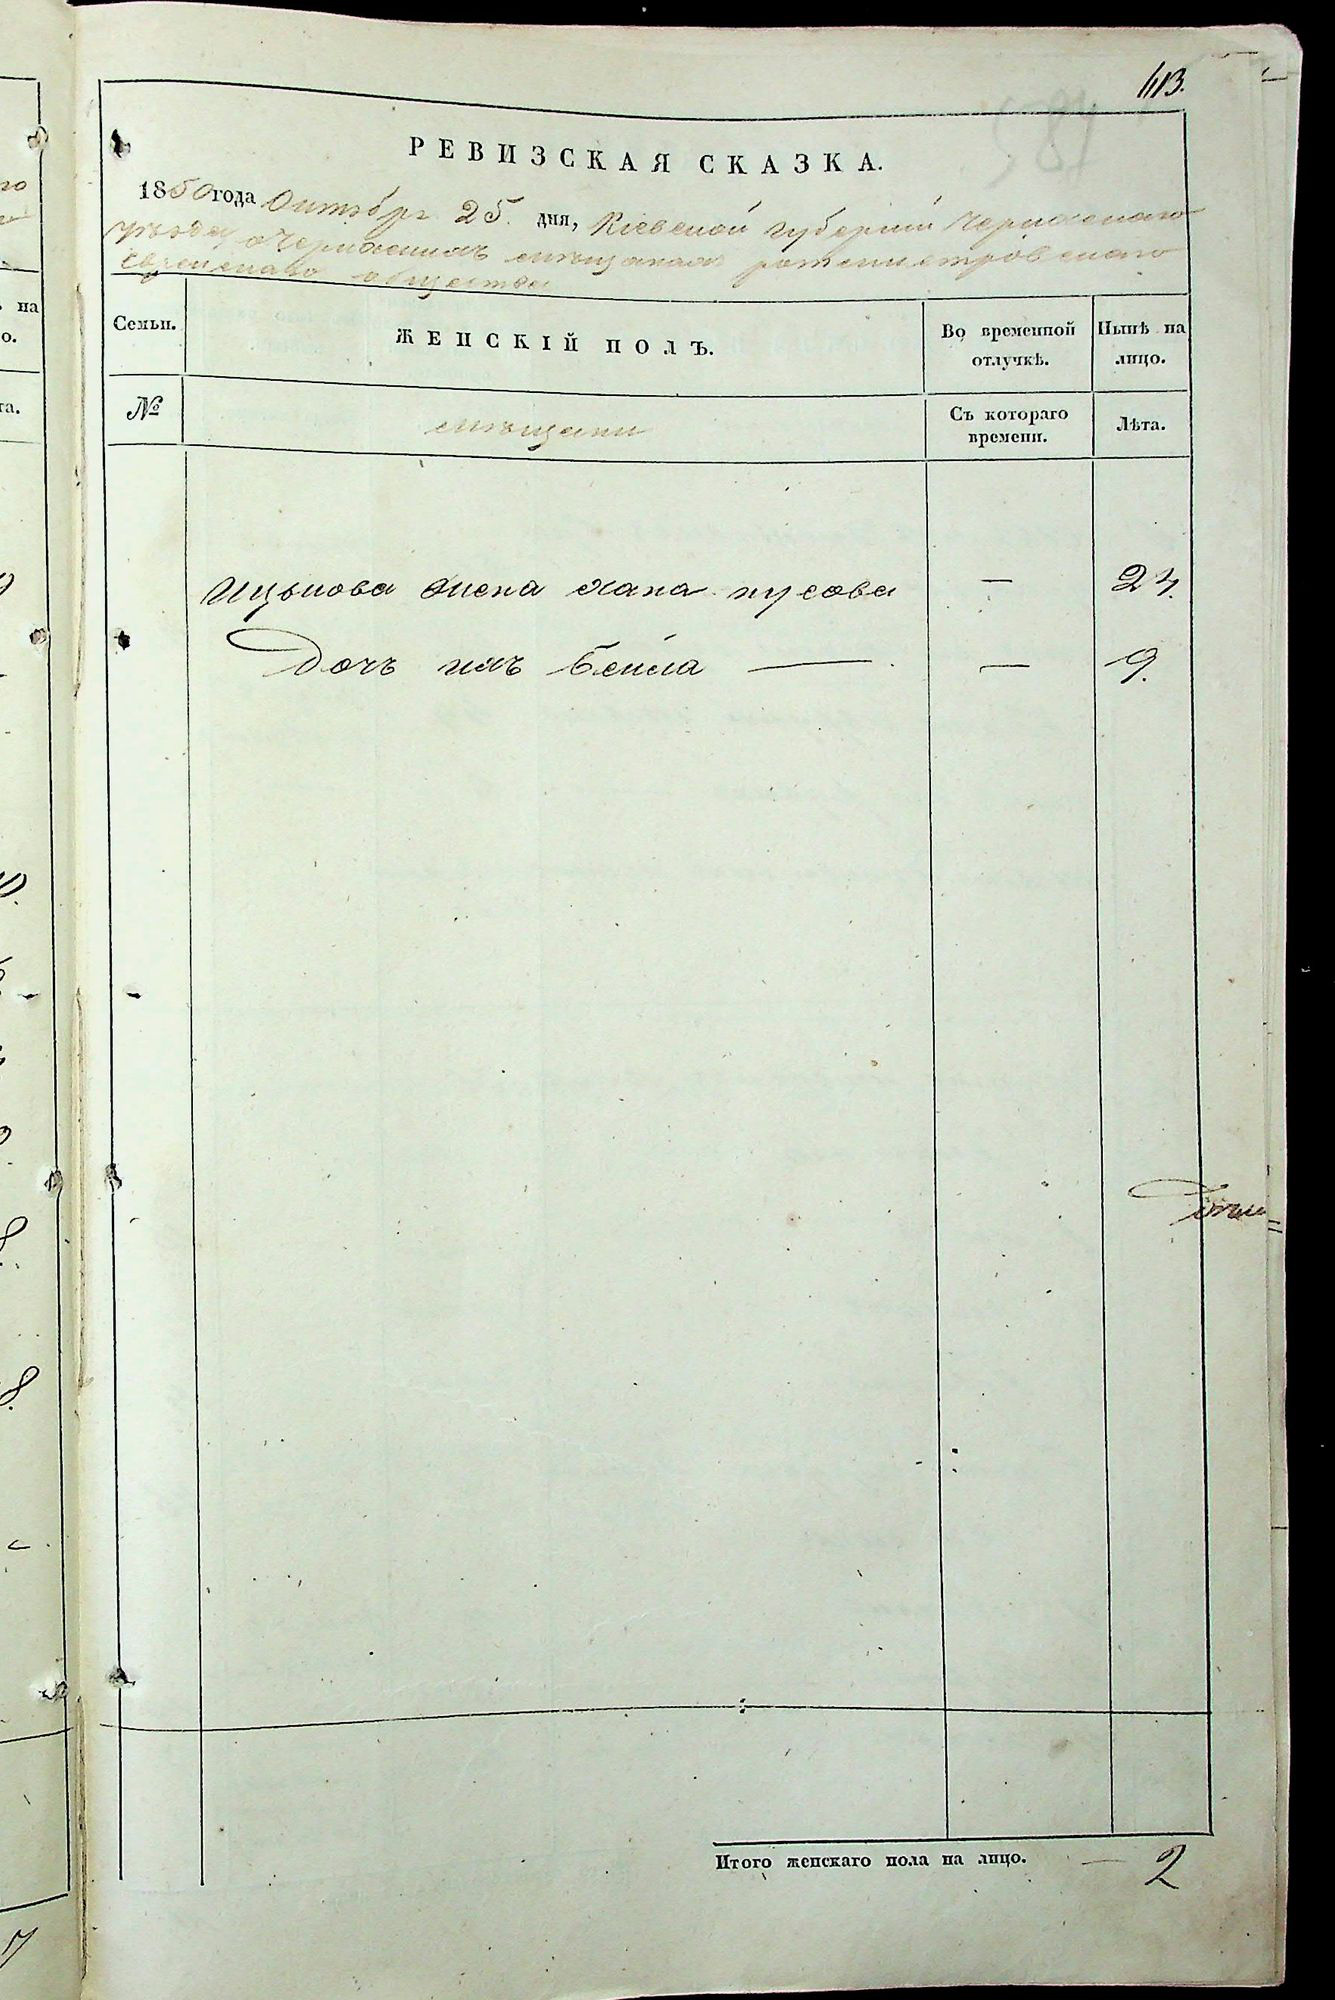 413.
РЕВИЗСКАЯ СКАЗКА.
1850 года Октября 25. дня, Кіевской губерніи Черкаскаго
уѣзда, о Черкаскихъ мѣщанахъ ротмистровскаго
еврейскаго общества
Семьи.
ЖЕНСКІЙ ПОЛЪ.
Во временной отлучкѣ.
Нынѣ на лицо.
№
мѣщани
Съ котораго времени.
Лѣта.
Ицькова жена Хана нусова — 24.
Дочь ихъ Бейла — — 9.
Итого женскаго пола на лицо. — 2